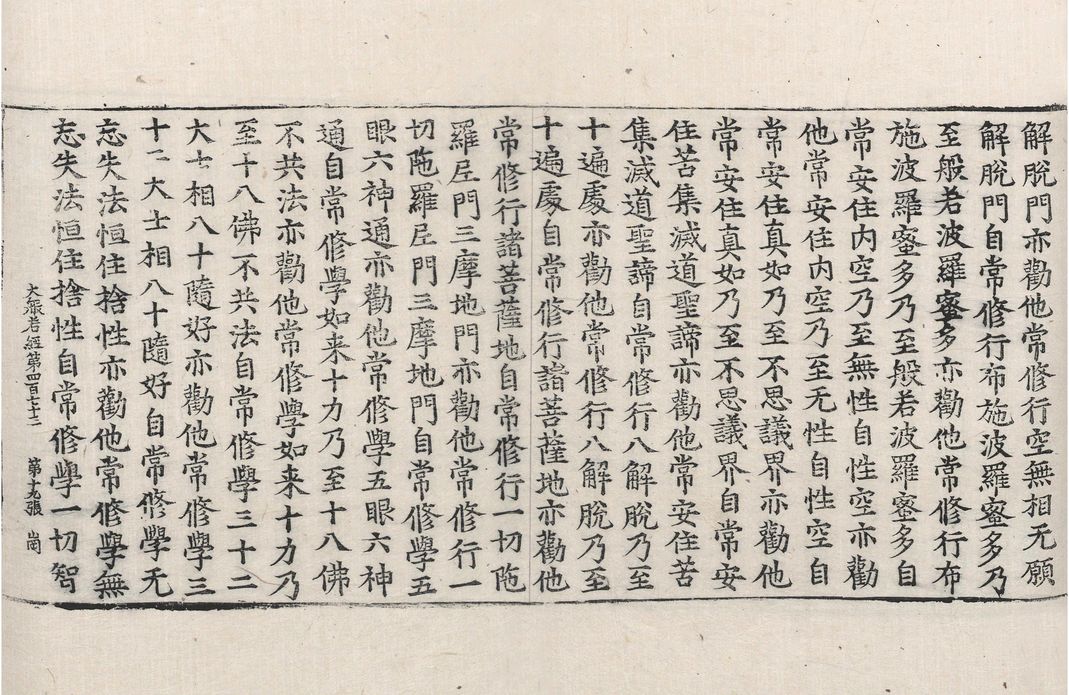 解脫門亦勸他常修行空無相无願
解脫門自常修行布施波羅蜜多乃
至般若波羅蜜多亦勸他常修行布
施波羅蜜多乃至般若波羅蜜多自
常安住內空乃至無性自性空亦勸
他常安住內空乃至无性自性空自
常安住真如乃至不思議界亦勸他
常安住真如乃至不思議界自常安
住苦集滅道聖諦亦勸他常安住苦
集滅道聖諦自常修行八解脫乃至
十遍處亦勸他常修行八解脫乃至
十遍處自常修行諸菩薩地亦勸他
常修行諸菩薩地自常修行一切陁
羅尼門三摩地門亦勸他常修行一
切陁羅尼門三摩地門自常修學五
眼六神通亦勸他常修學五眼六神
通自常修學如来十力乃至十八佛
不共法亦勸他常修學如来十力乃
至十八佛不共法自常修學三十二
大士相八十隨好亦勸他常修學三
十二大士相八十隨好自常修學无
忘失法恒住捨性亦勸他常修學無
忘失法恒住捨性自常修學一切智
大般若經第四百七十二 第十九張 崗